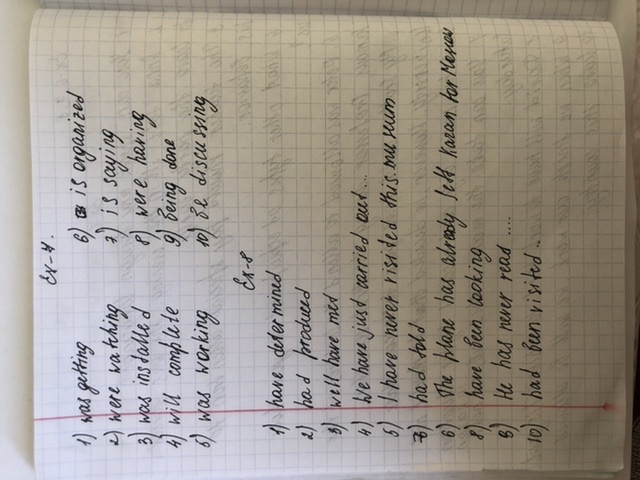 Ex-4.
1) was getting
2) were watching
3) was installed
4) will complete
5) was working
6) is organized
7) is saying
8) were having
9) being done
10) be discussing
Ex-8
1) have determined
2) had produced
3) will have met
4) We have just carried out...
5) I have never visited this museum
had told
6) The plane has already left Kazan for Moscow
8) have been looking
9) He has never read ....
10) had been visited..